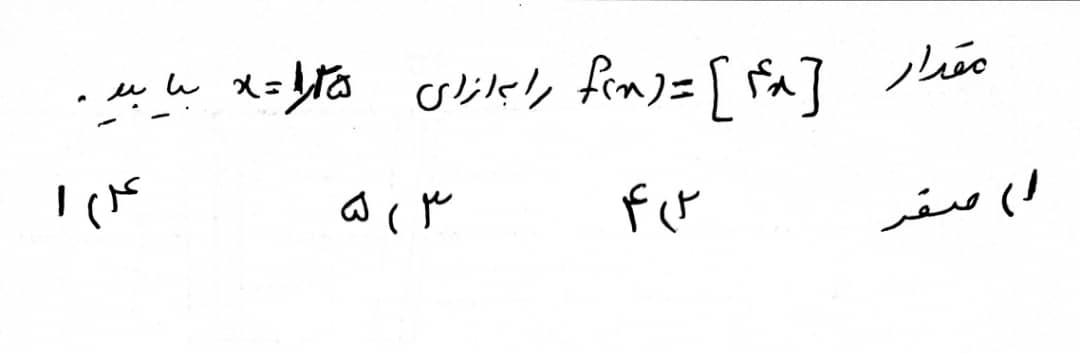 مقدار f(x)=[۴x] را بازای x=۱٫۲۵ بیابید.
۱) صفر ۲) ۴ ۳) ۵ ۴) ۱